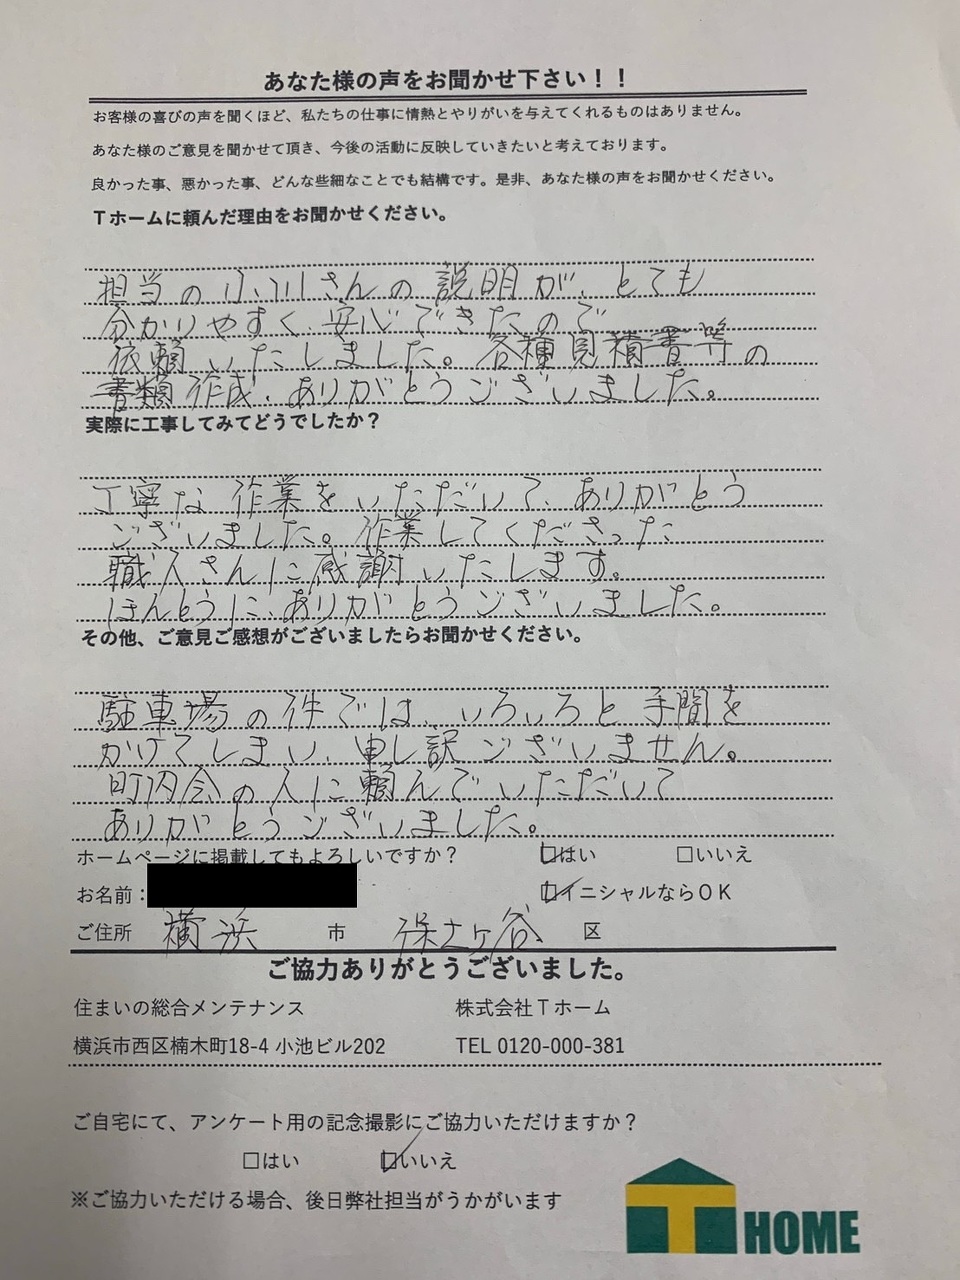 あなた様の声をお聞かせ下さい！！
お客様の喜びの声を聞くほど、私たちの仕事に情熱とやりがいを与えてくれるものはありません。
あなた様のご意見を聞かせて頂き、今後の活動に反映していきたいと考えております。
良かった事、悪かった事、どんな些細なことでも結構です。是非、あなた様の声をお聞かせください。
Ｔホームに頼んだ理由をお聞かせください。
担当の小川さんの説明が、とても
分かりやすく、安心できたので
依頼いたしました。各種見積書等の
書類作成、ありがとうございました。
実際に工事してみてどうでしたか？
丁寧な作業をいただいて、ありがとう
ございました。作業してくださった
職人さんに感謝いたします。
ほんとうに、ありがとうございました。
その他、ご意見ご感想がございましたらお聞かせください。
駐車場の件では、いろいろと手間を
かけてしまい、申し訳ございません。
町内会の人に頼んでいただいて
ありがとうございました。
ホームページに掲載してもよろしいですか？ ☑はい □いいえ
お名前： ☑イニシャルならＯＫ
ご住所 横浜 市 保土ヶ谷 区
ご協力ありがとうございました。
住まいの総合メンテナンス 株式会社Ｔホーム
横浜市西区楠木町18-4 小池ビル202 TEL 0120-000-381
ご自宅にて、アンケート用の記念撮影にご協力いただけますか？
□はい ☑いいえ
※ご協力いただける場合、後日弊社担当がうかがいます
T HOME